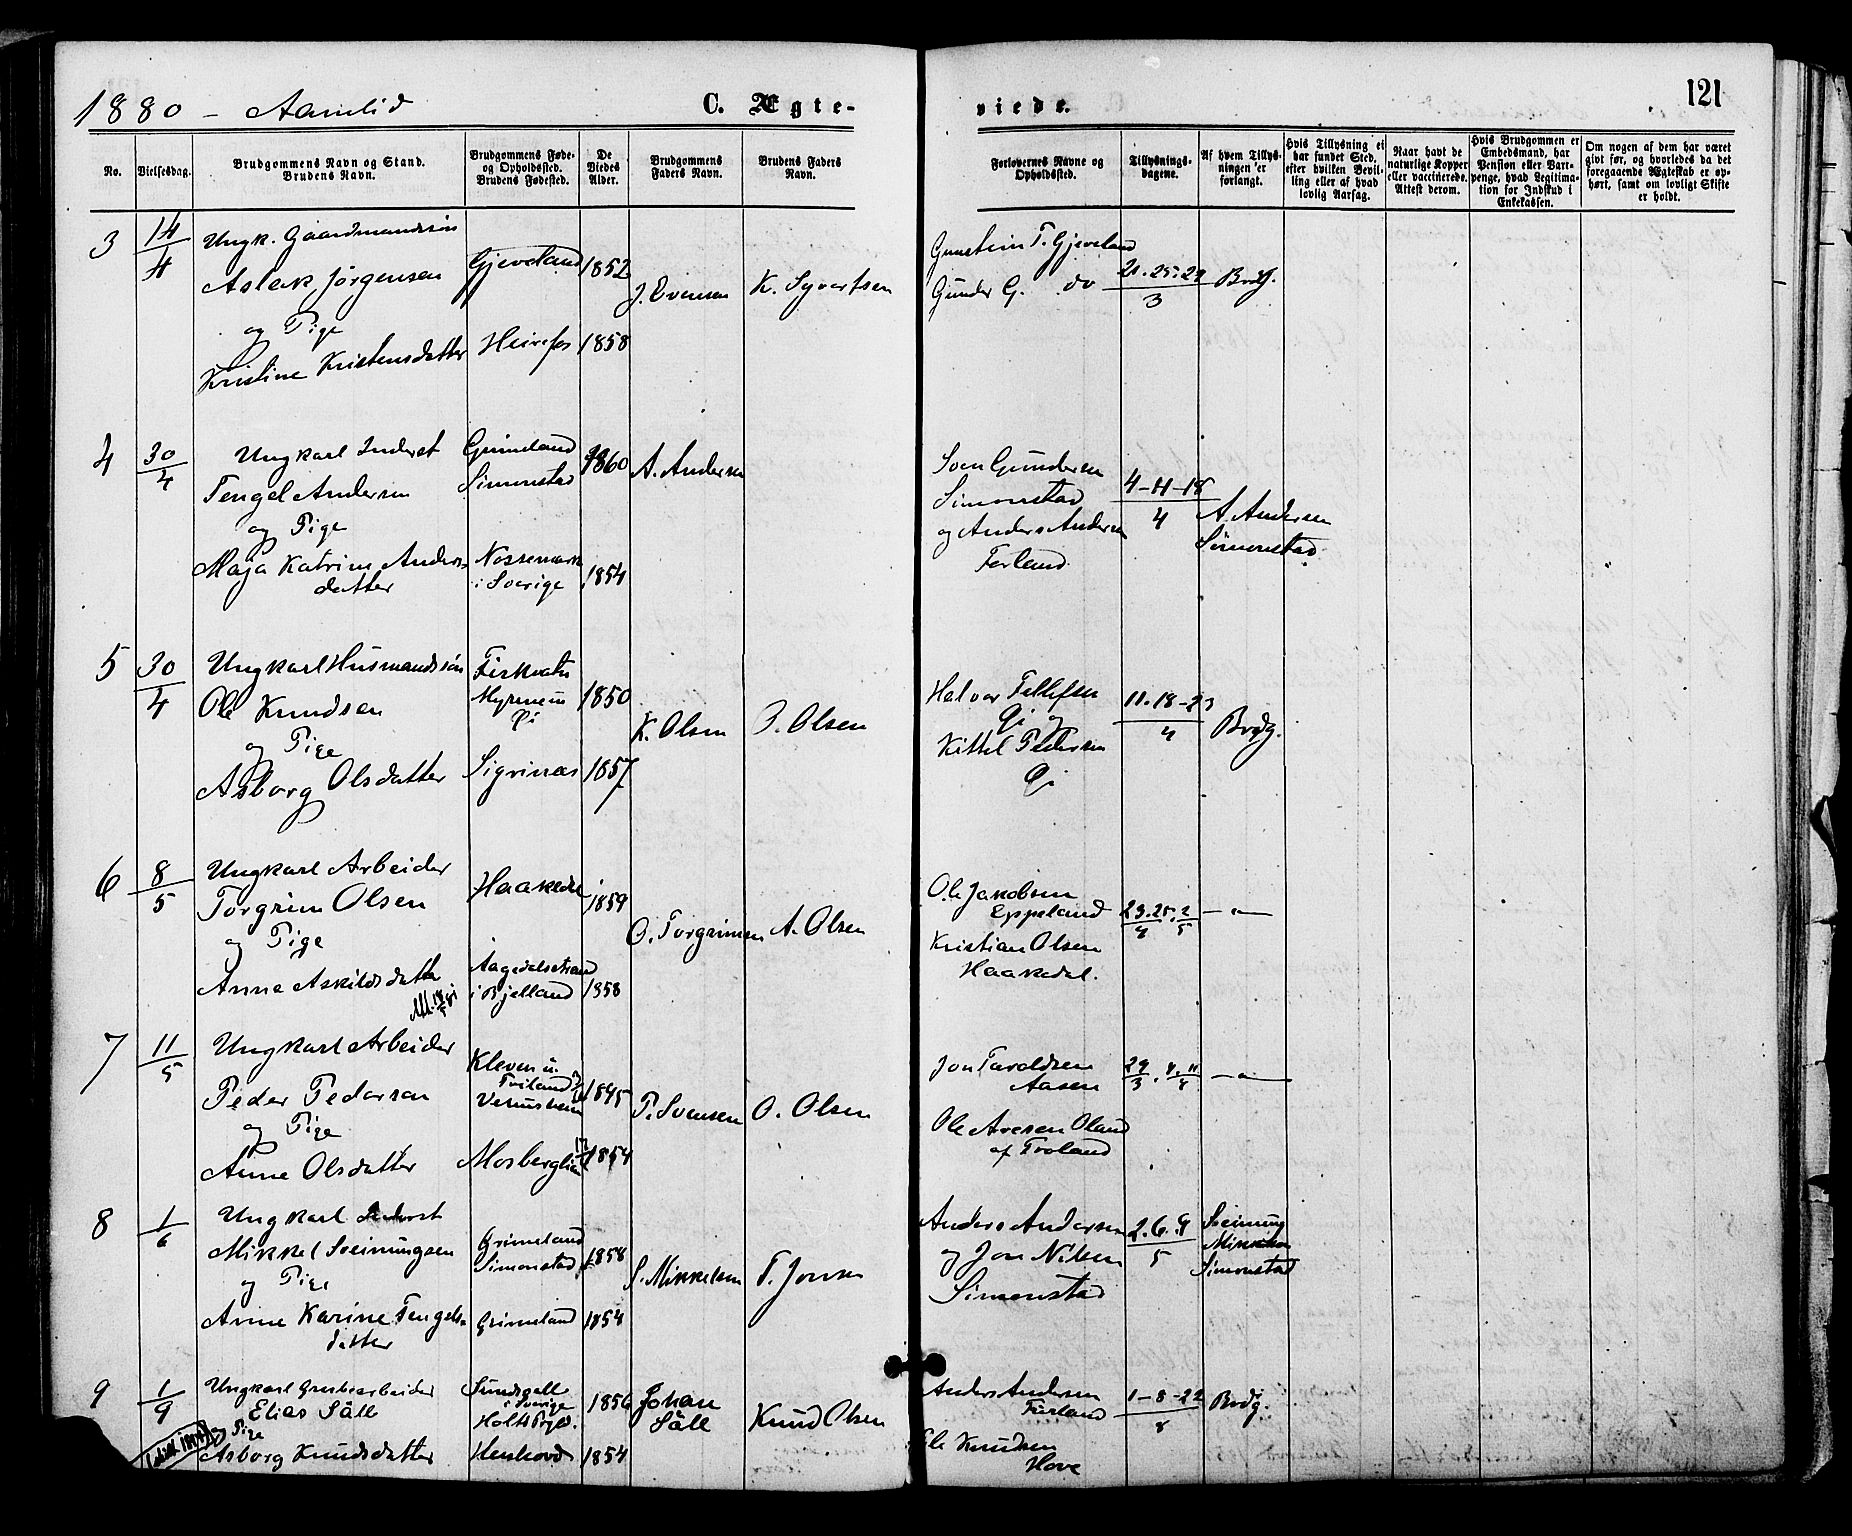 1880 - Aamlid
C. Ægte-
viede.
121
No.
Vielsesdag.
Brudgommens Navn og Stand.
Brudens Navn.
Brudgommens Føde-
og Opholdssted.
Brudens Fødested.
De
Viedes
Alder.
Brudgommens
Faders Navn.
Brudens Faders
Navn.
Forlovernes Navne og
Opholdssted.
Tillysnings-
dagene.
Af hvem Tillys-
ningen er
forlangt.
Hvis Tillysning ei
har fundet Sted,
efter hvilken Bevil-
ling eller af hvad
lovlig Aarsag.
Naar havt de
naturlige Kopper
eller vaccinerede.
Attest derom.
Hvis Brudgommen er
Embedsmand, har
Pension eller Vart-
penge, hvad Legitima-
tion for Indskud i
Enkekassen.
Om nogen af dem har været
gift før, og hvorledes da det
foregaaende Ægteskab er op-
hørt, samt om lovligt Skifte
er holdt.
3
14/4
Ungk. Gaardmandssøn
Aslak Jörgensen
og Pige
Kristine Kristensdatter
Gjeveland
Heirefos
1852
1858
J. Evensen
K. Syvertsen
Gunstein T. Gjeveland
Gunder G. do
21. 25. 29/3
Brdg.
4
30/4
Ungkarl Inderst
Tengel Andersen
og Pige
Maja Katrine Anders-
datter
Grimeland
Simonstad
Nossemark
i Sverige
1860
1854
A. Andersen
Sven Gundersen
Simonstad
og Anders Andersen
Førland
4 - 11 - 18/4
A. Andersen
Simonstad
5
30/4
Ungkarl Husmandssøn
Ole Knudsen
og Pige
Asborg Olsdatter
Myrene u
Sigrinæs
1850
1857
K. Olsen
O. Olsen
Halvor Tellefsen
og
Kittel Pedersen
11. 18 - 23/4
Brdg.
6
8/5
Ungkarl Arbeider
Torgrim Olsen
og Pige
Anne Askildsdatter
Haakedal
Aagedalstrand
i Bjelland
1859
1858
O. Torgrimsen
A. Olsen
Ole Jakobsen
Eppeland
Kristian Olsen
Haakedal.
23. 25/4. 2/5
— " —
7
11/5
Ungkarl Arbeider
Peder Pedersen
og Pige
Anne Olsdatter
Kleven u.
Mosberglien
1845
1854
P. Svensen
O. Olsen
Jon Taraldsen
Aasen
Ole Aresen Oland
af Froland
29/3. 4. 11/4
— " —
8
1/6
Ungkarl Inderst
Mikkel Sveinungsen
og Pige
Anne Karine Tengels-
datter
Grimeland
Simonstad
Grimeland
1858
1854
S. Mikkelsen
T. Jonsen
Anders Andersen
og Jon Nilsen
Simonstad
2. 6. 9/5
Sveinung
Mikkelsen
Simonstad
9
1/9
Ungkarl Grubearbeider
Elias Säll
og Pige
Asborg Knudsdatter
i Sverige
1856
1854
Johan
Säll
Knud Olsen
Anders Andersen
Førland
Ole Knudsen
Hove
1 - 8 - 22/8
Brdg.